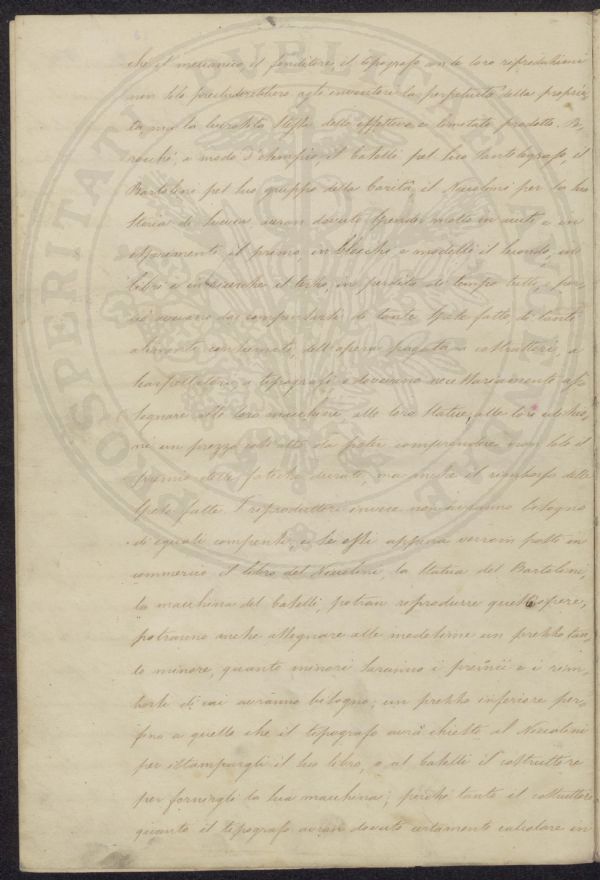 che il meccanico, il fonditore il tipografo con le loro riproduzioni
non solo precluderebbero agli inventori la perpetuità della proprie-
tà, ma la lucrosità stessa dello effettivo e limitato prodotto. Im-
rocchè, a modo d'esempio, il Caselli pel suo pantelegrafo, il
Bartolini pel suo gruppo della Carità, il Niccolini per la sua
Storia di Svevia avran dovuto spender molto in aiuti e in
esperimenti il primo, in blocchi e modelli il secondo, in
libri e in ricerche il terzo, in perdita di tempo tutti, e per-
ciò doveano da compensarsi di tante spese fatte, di tante
alimenti consumati, dell'opera pagata a costruttori, a
scarpellatori, a tipografi, e dovranno necessariamente as-
segnare alle loro macchine alle loro statue, alle loro edizio-
ni un prezzo così alto da poter comprendere non solo il
premio delle fatiche durate, ma anche il rimborso delle
spese fatte. I riproduttori invece non avranno bisogno
di eguali compensi, e se essi appena verran posti in
commercio il libro del Niccolini, la statua del Bartolini,
la macchina del Caselli, potran riprodurre queste opere,
potranno anche assegnare alle medesime un prezzo tan-
to minore, quanto minori saranno i premii e i rim-
borsi di cui avranno bisogno; un prezzo inferiore per-
fino a quello che il tipografo avrà chiesto al Niccolini
per istampargli il suo libro, o al Caselli il costruttore
per fornirgli la sua macchina; perchè tanto il costruttore
quanto il tipografo avran dovuto certamente calcolare in
PROSPERITATI PVBLICAE AVGENDAE